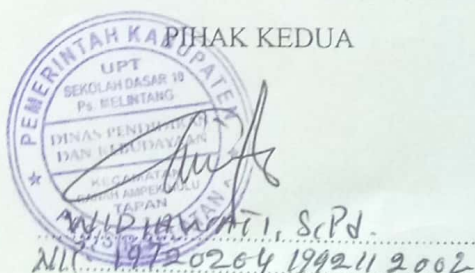 PIHAK KEDUA
PEMERINTAH KABUPATEN
UPT
SEKOLAH DASAR 10
Ps. MELINTANG
DINAS PENDIDIKAN
DAN KEBUDAYAAN
KECAMATAN
AMPEK HULU
TAPAN
WIDIAWATI, S.Pd.
19720204 199211 2002